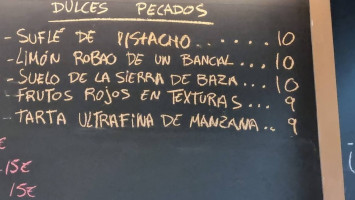 DULCES PECADOS
- SUFLÉ DE PISTACHO.......10
- LIMÓN ROBAO DE UN BANCAL...10
- SUELO DE LA SIERRA DE BAZA...10
- FRUTOS ROJOS EN TEXTURAS...9
- TARTA ULTRAFINA DE MANZANA..9
15€
15€